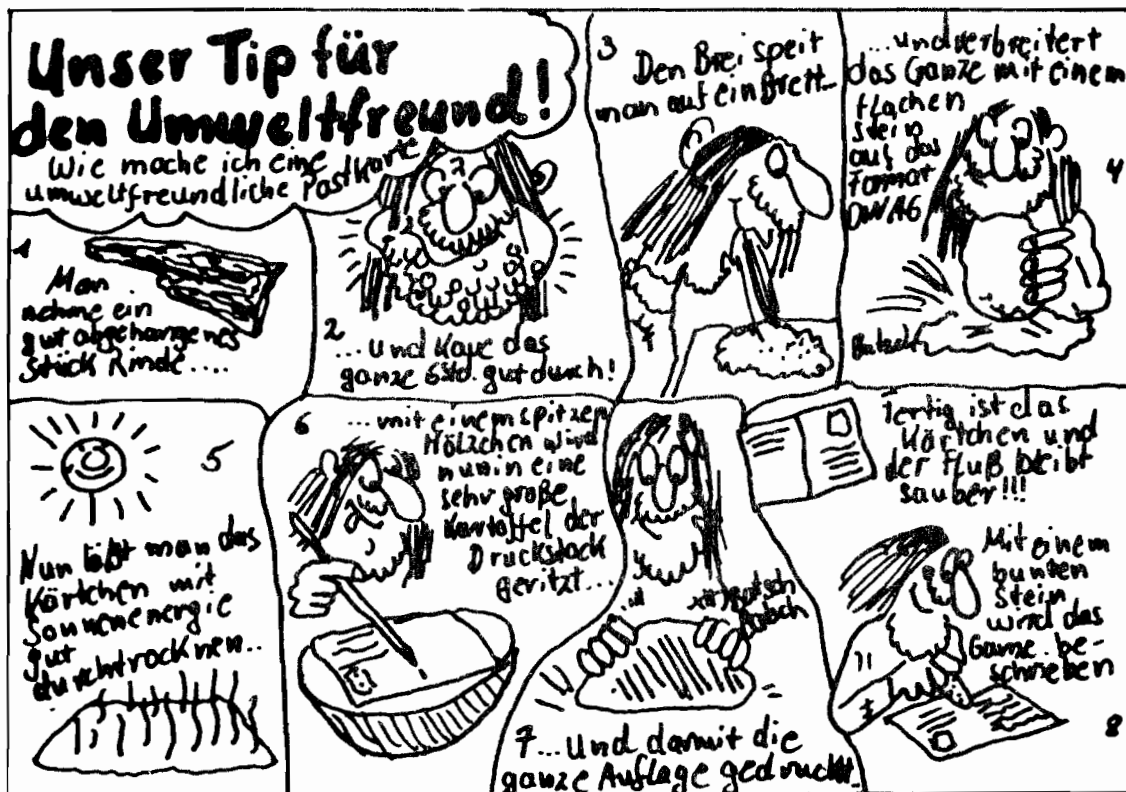 Unser Tip für
den Umweltfreund!
Wie mache ich eine
umweltfreundliche Postkarte
?
1
Man
nehme ein
gut abgehangenes
Stück Rinde....
2
...und kaue das
ganze 6 Std. gut durch!
3
Den Brei speit
man auf ein Brett...
...und verbreitert
das Ganze mit einem
flachen
Stein
auf das
Format
DIN A6
4
Batsch
5
Nun läßt man das
Kärtchen mit
Sonnenenergie
gut
durchtrocknen..
6
...mit einem spitzen
Hölzchen wird
nun in eine
sehr große
Kartoffel der
Druckstock
geritzt...
Batsch
7...Und damit die
ganze Auflage gedruckt.
Fertig ist das
Kärtchen und
der Fluß bleibt
sauber!!!
Mit einem
bunten
Stein
wird das
Ganze be-
schrieben
8